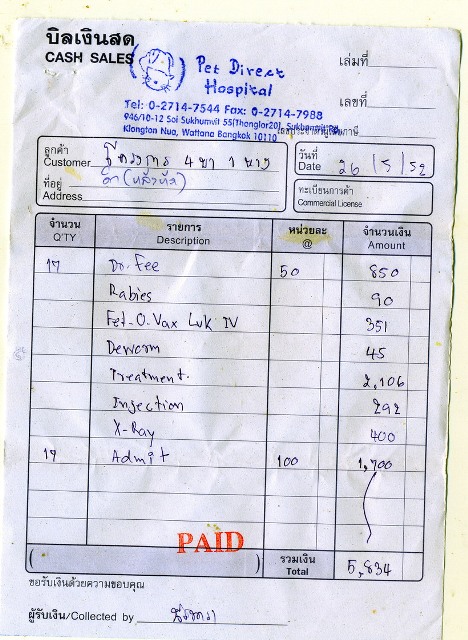 บิลเงินสด
CASH SALES
Pet Direct
Hospital
เล่มที่
เลขที่
Tel: 0-2714-7544 Fax: 0-2714-7988
946/10-12 Soi Sukhumvit 55(Thonglor20), Sukhumvit Rd.
Klongton Nua, Wattana Bangkok 10110
ลูกค้า
Customer โครงการ 4 ขา 1 หาง
ที่อยู่
Address
วันที่
Date 26 / 5 / 52
ทะเบียนการค้า
Commercial License
จำนวน รายการ หน่วยละ จำนวนเงิน
Q'TY Description @ Amount
17 Dr. Fee 50 850
Rabies 90
Fel-O-Vax Luk IV 351
Deworm 45
Treatment. 2,106
Injection 292
X-Ray 400
17 Admit 100 1,700
PAID
รวมเงิน
Total 5,834
ขอรับเงินด้วยความขอบคุณ
ผู้รับเงิน/Collected by